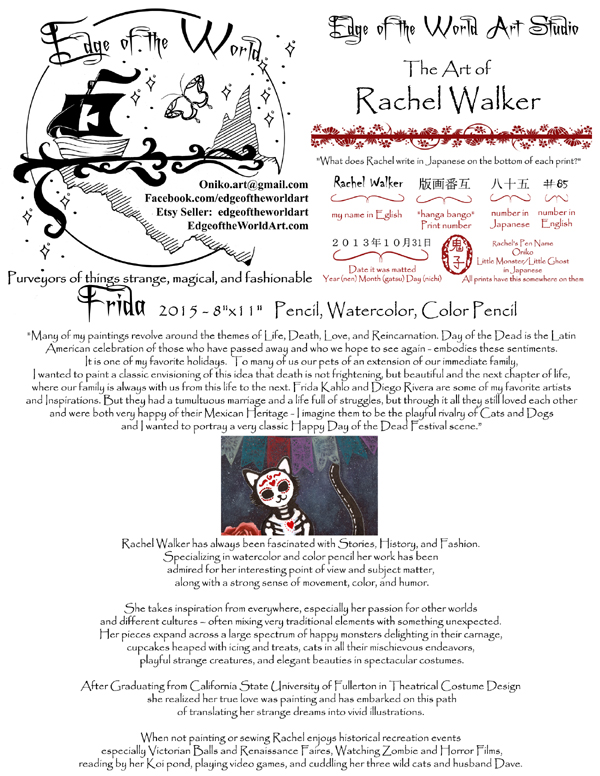 Edge of the World
Oniko.art@gmail.com
Facebook.com/edgeoftheworldart
Etsy Seller: edgeoftheworldart
EdgeoftheWorldArt.com
Purveyors of things strange, magical, and fashionable
Edge of the World Art Studio
The Art of
Rachel Walker
"What does Rachel write in Japanese on the bottom of each print?"
Rachel Walker 版画番互 八十五 #85
my name in Eglish
"hanga bango"
Print number
number in
Japanese
number in
English
2013年10月31日
Date it was matted
Year (nen) Month (gatsu) Day (nichi)
鬼
子
Rachel's Pen Name
Oniko
Little Monster/Little Ghost
in Japanese
All prints have this somewhere on them
Frida 2015 - 8"x11" Pencil, Watercolor, Color Pencil
"Many of my paintings revolve around the themes of Life, Death, Love, and Reincarnation. Day of the Dead is the Latin
American celebration of those who have passed away and who we hope to see again - embodies these sentiments.
It is one of my favorite holidays. To many of us our pets of an extension of our immediate family,
I wanted to paint a classic envisioning of this idea that death is not frightening, but beautiful and the next chapter of life,
where our family is always with us from this life to the next. Frida Kahlo and Diego Rivera are some of my favorite artists
and Inspirations. But they had a tumultuous marriage and a life full of struggles, but through it all they still loved each other
and were both very happy of their Mexican Heritage - I imagine them to be the playful rivalry of Cats and Dogs
and I wanted to portray a very classic Happy Day of the Dead Festival scene."
Rachel Walker has always been fascinated with Stories, History, and Fashion.
Specializing in watercolor and color pencil her work has been
admired for her interesting point of view and subject matter,
along with a strong sense of movement, color, and humor.
She takes inspiration from everywhere, especially her passion for other worlds
and different cultures – often mixing very traditional elements with something unexpected.
Her pieces expand across a large spectrum of happy monsters delighting in their carnage,
cupcakes heaped with icing and treats, cats in all their mischievous endeavors,
playful strange creatures, and elegant beauties in spectacular costumes.
After Graduating from California State University of Fullerton in Theatrical Costume Design
she realized her true love was painting and has embarked on this path
of translating her strange dreams into vivid illustrations.
When not painting or sewing Rachel enjoys historical recreation events
especially Victorian Balls and Renaissance Faires, Watching Zombie and Horror Films,
reading by her Koi pond, playing video games, and cuddling her three wild cats and husband Dave.